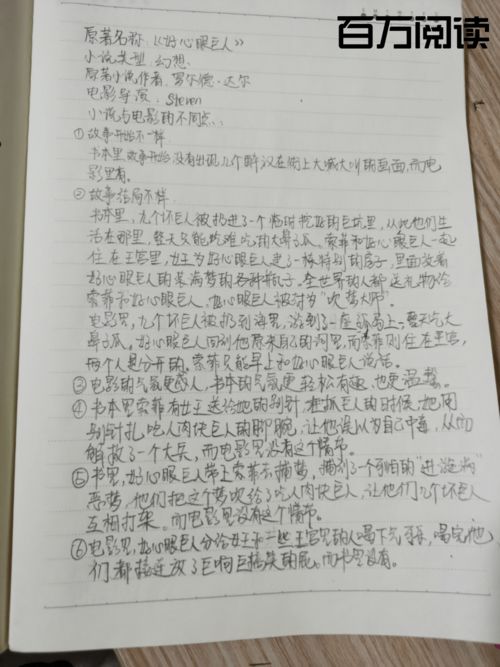 百万阅读
原著名称:《好心眼巨人》
小说类型:幻想.
原著小说作者:罗尔德·达尔
电影导演:Steven
小说与电影的不同点:
①故事开始不一样
书本里,故事开始没有出现几个醉汉在街上大喊大叫的画面,而电
影里有。
②故事结局不一样.
书本里,九个坏巨人被扔进了一个临时挖好的巨坑里,从此他们生
活在那里,整天只能吃难吃的大鼻子瓜。索菲和好心眼巨人一起
住在王宫里,女王为好心眼巨人造了一栋特别的房子,里面放着
好心眼巨人的装满梦的各种瓶子。全世界的人都送礼物给
索菲和好心眼巨人,好心眼巨人被封为"吹梦大师"。
电影里,九个坏巨人被扔到海里,游到了一座孤岛上,整天吃大
鼻子瓜。好心眼巨人回到他原来自己的洞里,而索菲则住在王宫,
两个人是分开的。索菲只能早上和好心眼巨人说话。
③电影的气氛更感人,书本的气氛更轻松有趣,也更温馨。
④书本里索菲有女王送给她的别针,在抓巨人的时候,她用
别针扎吃人肉块巨人的脚腕,让他误以为自己中毒,从而
解救了一个大兵,而电影里没有这个情节。
⑤书里,好心眼巨人带上索菲去捕梦,捕到了一个可怕的
恶梦,他们把这个梦吹给了吃人肉块巨人,让他们九个坏巨人
互相打架。而电影里没有这个情节。
⑥电影里,好心眼巨人分给女王和一些王宫里的人喝下气可乐,喝完他
们都接连放了巨响巨搞笑的屁。而书里没有。